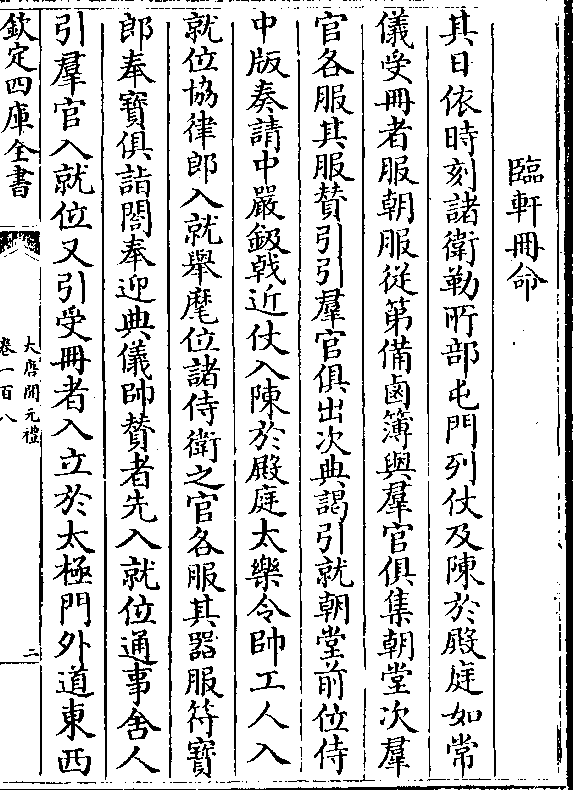 臨軒冊命
其日依時刻諸衛勒所部屯門列仗及陳於殿庭如常
儀受冊者服朝服從第備鹵簿與羣官俱集朝堂次羣
官各服其服贊引引羣官俱出次典謁引就朝堂前位侍
中版奏請中嚴鈒戟近仗入陳於殿庭太樂令帥工人入
就位協律郎入就舉麾位諸侍衛之官各服其器服符寶
郎奉寶俱詣閤奉迎典儀帥贊者先入就位通事舍人
引羣官入就位又引受冊者入立於太極門外道東西
欽定四庫全書
大唐開元禮
卷一百八
三